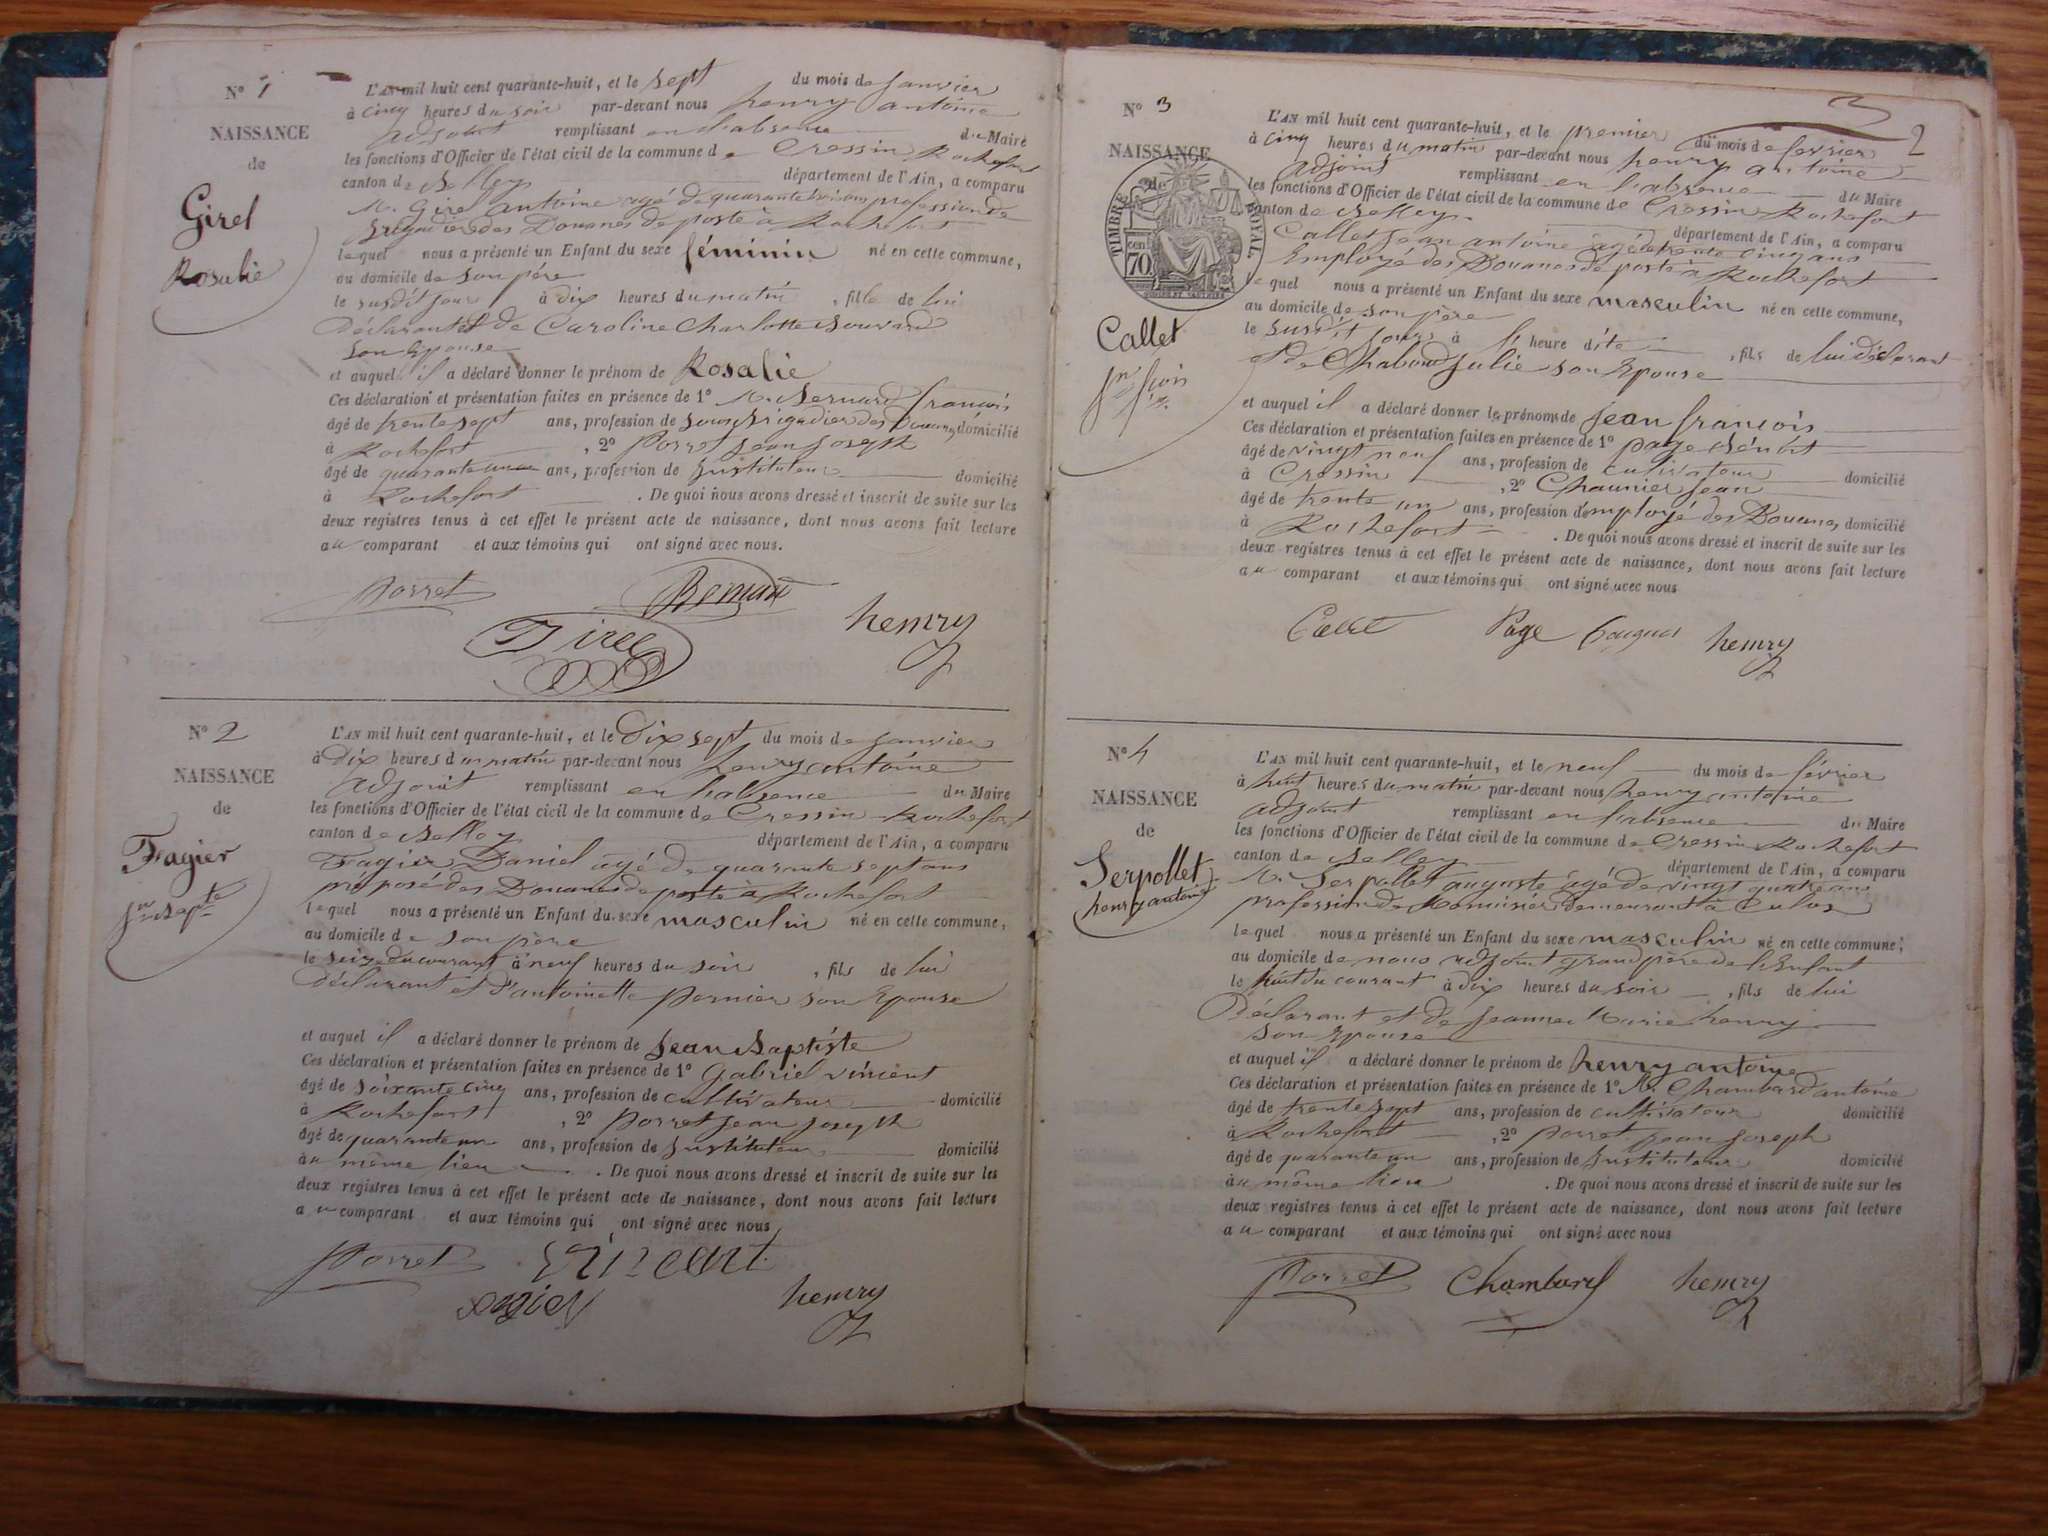 N° 1
NAISSANCE
de
Girel
Rosalie
L'AN mil huit cent quarante-huit, et le sept du mois de janvier
à cinq heures du soir par-devant nous henry antoine
adjoint remplissant en l'absence du Maire
les fonctions d'Officier de l'état civil de la commune de Cressin Rochefort
canton de Belley département de l'Ain, a comparu
M. Girel antoine agé de quarante trois ans profession de
Brigadier des Douanes de poste à Rochefort
lequel nous a présenté un Enfant du sexe féminin né en cette commune,
au domicile de son père
le susdit jour à dix heures du matin, fille de lui
Déclarant et de Caroline Charlotte Bouvard
son Epouse
et auquel il a déclaré donner le prénom de Rosalie
Ces déclaration et présentation faites en présence de 1° M. Bernard françois
âgé de trente sept ans, profession de Sous Brigadier des Douanes, domicilié
à Rochefort, 2° Porret Jean Joseph
âgé de quarante un ans, profession de Instituteur domicilié
à Rochefort. De quoi nous avons dressé et inscrit de suite sur les
deux registres tenus à cet effet le présent acte de naissance, dont nous avons fait lecture
au comparant et aux témoins qui ont signé avec nous.
Porret Bernard
Girel henry
N° 2
NAISSANCE
de
Fagier
Jn Bapte
L'AN mil huit cent quarante-huit, et le Dix sept du mois de janvier
à Dix heures du matin par-devant nous henry antoine
adjoint remplissant en l'absence du Maire
les fonctions d'Officier de l'état civil de la commune de Cressin Rochefort
canton de Belley département de l'Ain, a comparu
Fagier Daniel âgé de quarante sept ans
préposé des Douanes de poste à Rochefort
lequel nous a présenté un Enfant du sexe masculin né en cette commune,
au domicile de son père
le seize du courant à neuf heures du soir, fils de lui
Déclarant et d'antoinette Pernier son Epouse
et auquel il a déclaré donner le prénom de Jean Baptiste
Ces déclaration et présentation faites en présence de 1° Gabriel vincent
âgé de soixante cinq ans, profession de cultivateur domicilié
à Rochefort, 2° Porret Jean Joseph
âgé de quarante un ans, profession de Instituteur domicilié
au même lieu. De quoi nous avons dressé et inscrit de suite sur les
deux registres tenus à cet effet le présent acte de naissance, dont nous avons fait lecture
au comparant et aux témoins qui ont signé avec nous
Porret
henry
3
2
N° 3
NAISSANCE
de
TIMBRE ROYAL
70 cen
Callet
Jn fçois
L'AN mil huit cent quarante-huit, et le premier du mois de fevrier
à cinq heures du matin par-devant nous henry antoine
adjoint remplissant en l'absence du Maire
les fonctions d'Officier de l'état civil de la commune de Cressin Rochefort
canton de Belley département de l'Ain, a comparu
Callet Jean antoine âgé de trente cinq ans
Employé des Douanes de poste à Rochefort
lequel nous a présenté un Enfant du sexe masculin né en cette commune,
au domicile de son père
le susdit jour à l' heure dite, fils de lui déclarant
et de Chaboud Julie son Epouse
et auquel il a déclaré donner les prénoms de Jean françois
Ces déclaration et présentation faites en présence de 1° page Benoit
âgé de vingt neuf ans, profession de cultivateur domicilié
à Cressin, 2° Chaunier Jean
âgé de trente un ans, profession d'employé des Douanes, domicilié
à Rochefort. De quoi nous avons dressé et inscrit de suite sur les
deux registres tenus à cet effet le présent acte de naissance, dont nous avons fait lecture
au comparant et aux témoins qui ont signé avec nous
Page henry
N° 4
NAISSANCE
de
Serpollet
henry antoine
L'AN mil huit cent quarante-huit, et le neuf du mois de février
à huit heures du matin par-devant nous henry antoine
adjoint remplissant en l'absence du Maire
les fonctions d'Officier de l'état civil de la commune de Cressin Rochefort
canton de Belley département de l'Ain, a comparu
M. Serpollet auguste âgé de vingt quatre ans
profession de Menuisier demeurant à Culoz
lequel nous a présenté un Enfant du sexe masculin né en cette commune,
au domicile de nous adjoint grand père de l'Enfant
le huit du courant à dix heures du soir, fils de lui
Déclarant et de Jeanne Marie henry
son Epouse
et auquel il a déclaré donner le prénom de henry antoine
Ces déclaration et présentation faites en présence de 1° Mr Chambard antoine
âgé de trente sept ans, profession de cultivateur domicilié
à Rochefort, 2° Porret Jean Joseph
âgé de quarante un ans, profession de Instituteur domicilié
au même lieu. De quoi nous avons dressé et inscrit de suite sur les
deux registres tenus à cet effet le présent acte de naissance, dont nous avons fait lecture
au comparant et aux témoins qui ont signé avec nous
Porret Chambard henry